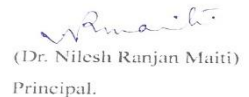 NRMaiti.
(Dr. Nilesh Ranjan Maiti)
Principal.